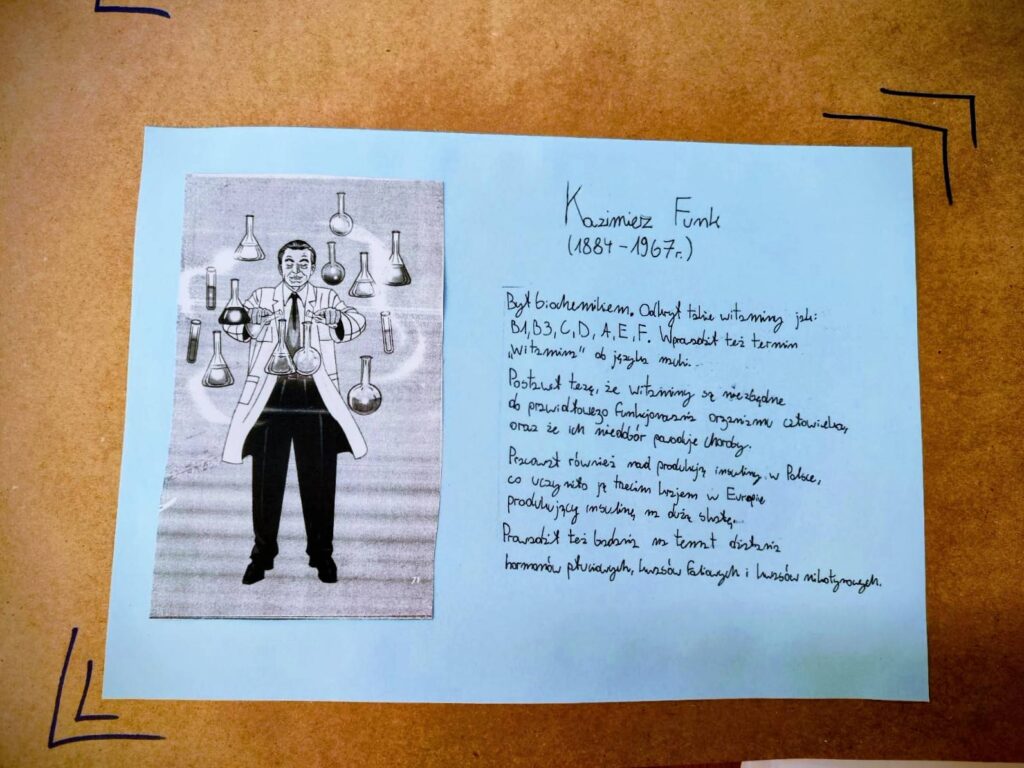 Kazimierz Funk
(1884-1967r.)
Był biochemikiem. Odkrył takie witaminy jak:
B1, B3, C, D, A, E, F. Wprowadził też termin
„witamina" do języka nauki.
Postawił tezę, że witaminy są niezbędne
do prawidłowego funkcjonowania organizmu człowieka,
oraz że ich niedobór powoduje choroby.
Pracował również nad produkcją insuliny w Polsce,
co uczyniło ją trzecim krajem w Europie
produkujący insulinę na dużą skalę.
Prowadził też badania na temat działania
hormonów płciowych, kwasów foliowych i kwasów nikotynowych.